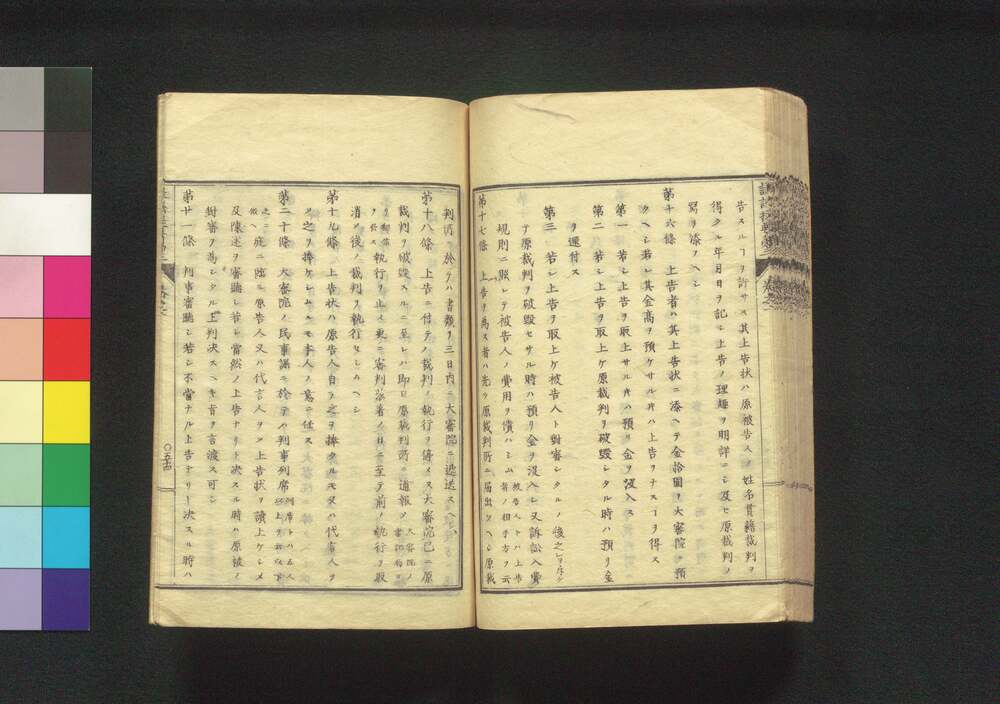 告スルヿヲ許サス其上告状ハ原被告人ノ姓名貫籍裁判ヲ
得タル年月日ヲ記シ上告ノ理趣ヲ明詳ニシ及ヒ原裁判ノ
寫ヲ添ヘシ
第十六條 上告者ハ其上告状ニ添ヘテ金拾圓ヲ大審院ニ預
クヘシ若シ其金高ヲ預ケサル片ハ上告ヲナスヿヲ得ス
第一 若シ上告ヲ取上サル片ハ預リ金ヲ没入ス
第二 若シ上告ヲ取上ケ原裁判ヲ破毀シタル時ハ預リ金
ヲ還付ス
第三 若シ上告ヲ取上ケ被告人ト對審シタルノ後
テ原裁判ヲ破毀セサル時ハ預リ金ヲ没入シ又訴訟入費
規則ニ照シテ被告人ノ費用ヲ償ハシム 被告人トハ上告者ノ相手方ヲ云
第十七條 上告ヲ為ス者ハ先ツ原裁判所ニ届出ツヘシ原裁
判所ニ於テハ書類ヲ三日内ニ大審院ニ逓送スヘシ
第十八條 上告ニ付テノ裁判ノ執行ヲ停メス大審院已ニ原
裁判ヲ破毀スルニ至レハ即日原裁判所ニ通報シ 大審院ノ書記局ヨリ
執行ヲ止メ更ニ審判落着ノ日ニ至テ前ノ執行ヲ取
消シ後ノ裁判ヲ執行セシムヘシ
第十九條 上告状ハ原告人自ラ之ヲ捧クル又ハ代書人ヲ
之ヲ捧ケシムルモ本人ノ意ニ任ス
第二十條 大審院ノ民事課ニ於テハ判事列席 列席トハ五人以上ヲ云以下
之ニ倣ヘ 庭ニ臨ミ原告人又ハ代言人ヲシテ上告状ヲ讀上ケシメ
及陳述ヲ審聽シ若シ當然ノ上告ナリト決スル時ハ原被ノ
對審ヲ為シタル上判決スヘキ旨ヲ言渡ス可シ
第廿一條 判事審聽シ若シ不當ナル上告ナリト決スル時ハ
〇五十四